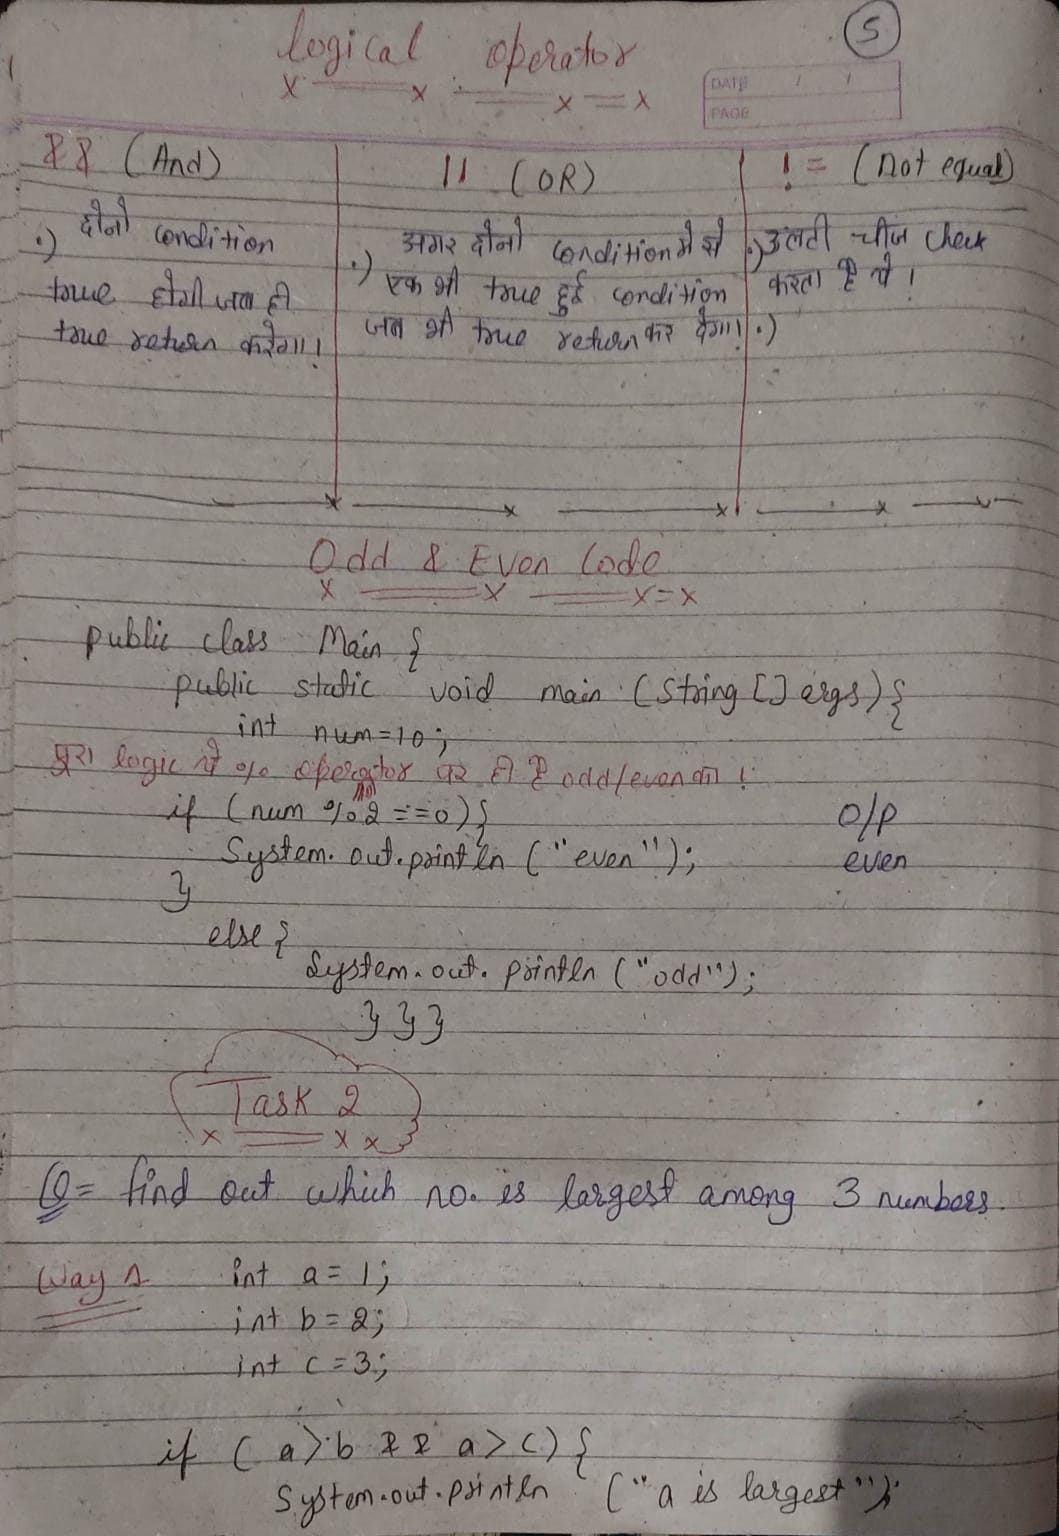 logical operator
5
DATE / /
PAGE
&& (And)
•) दोनो condition
true होगी जब ही
true return करेगा।
|| (OR)
•) अगर दोनो condition मे से
एक भी true हुई condition
जब भी true return कर देगा।
!= (Not equal)
•) उलटी चीज check
करता है ये।
•)
Odd & Even Code
public class Main {
public static void main (String [] args) {
int num=10;
पूरा logic ये % operator पर ही है odd/even का !
if (num % 2 ==0) {
O/P
System.out.println ("even");
even
}
else {
System.out.println ("odd");
} } }
Task 2
Q= find out which no. is largest among 3 numbers.
Way 1
int a = 1;
int b = 2;
int c = 3;
if (a > b && a > c) {
System.out.println ("a is largest");